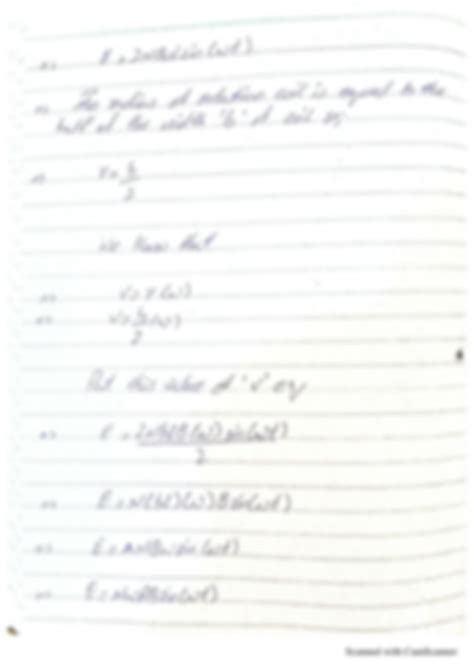 => E = 2NBlv sin(wt)
=> The radius of rotation coil is equal to the
half of the width 'b' of coil
=> r = b/2
We know that
=> v = r(w)
=> v = b/2 (w)
Put this value of 'v'
=> E = 2NBlb(w) sin(wt) / 2
=> E = N(bl)(w)B sin(wt)
=> E = ANBw sin(wt)
=> E = NwAB sin(wt)
Scanned with CamScanner